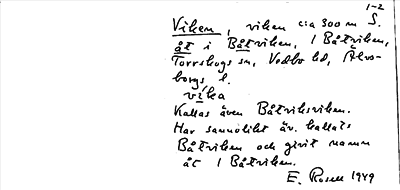 1-2
Viken, viken c:a 300 m S.
åt i Båtviken, 1 Båtviken,
Torrskogs sn, Vedbo hd, Älvs-
borgs l.
vika
Kallas även Båtviksviken.
Har sannolikt äv. kallats
Båtviken och givit namn
åt 1 Båtviken.
E. Rosell 1949